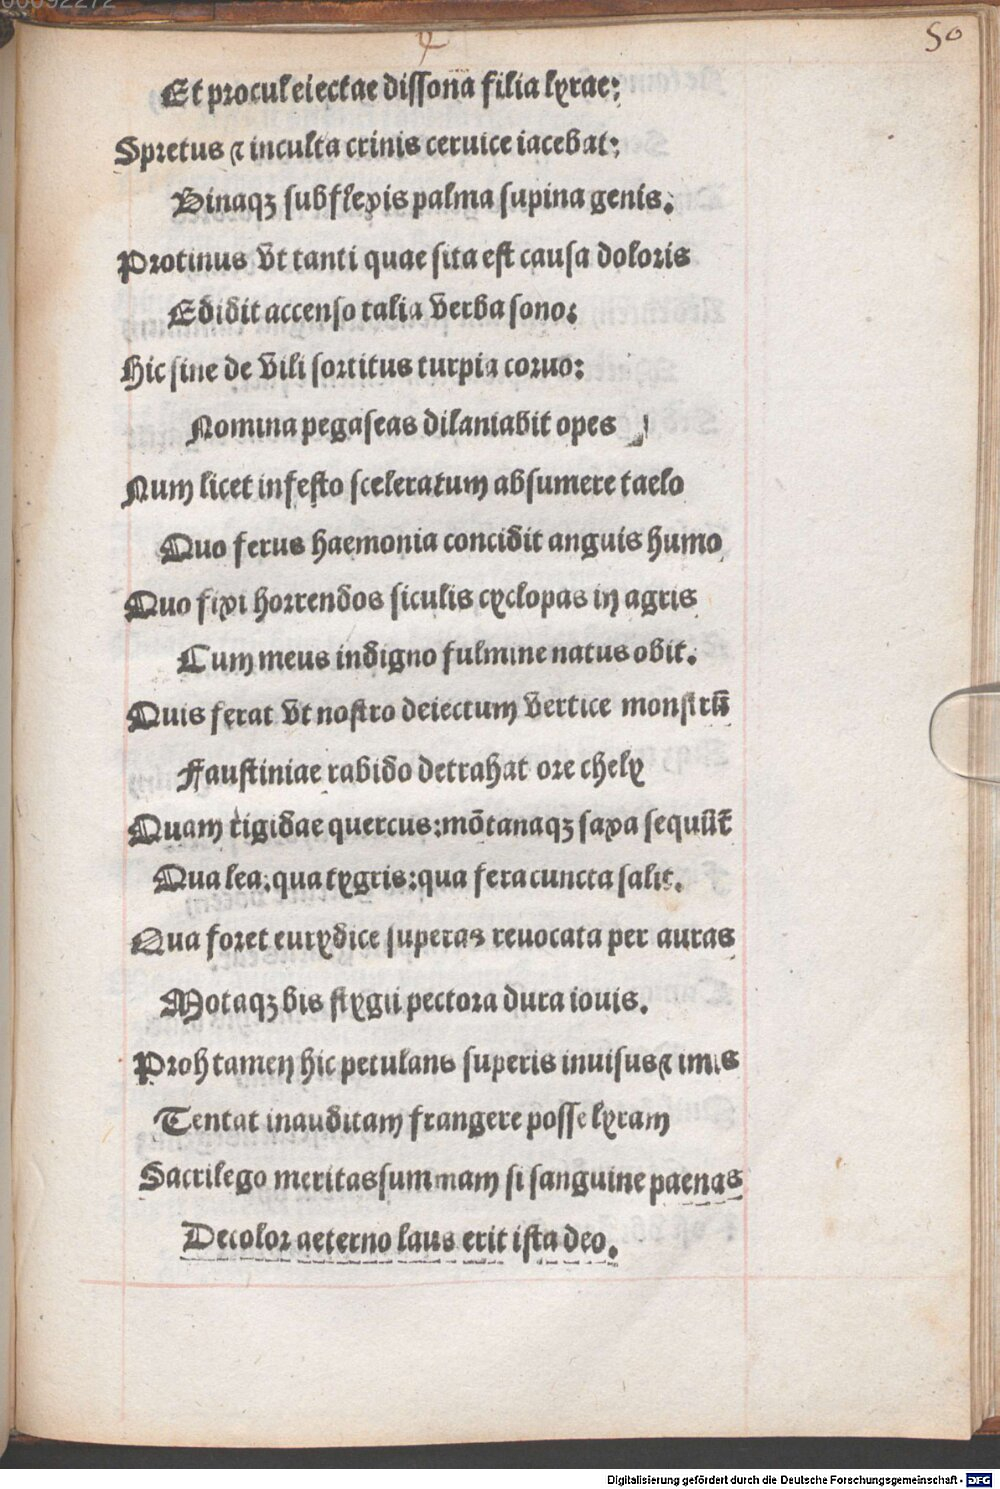 00092272
50
Et procul eiectae dissona filia lyrae:
Spretus ⁊ inculta crinis ceruice iacebat:
Binaqꝫ subflexis palma supina genis.
Protinus vt tanti quae sita est causa doloris
Edidit accenso talia verba sono:
Hic sine de vili sortitus turpia coruo:
Nomina pegaseas dilaniabit opes
Num licet infesto sceleratum absumere taelo
Quo ferus haemonia concidit anguis humo
Quo fixi horrendos siculis cyclopas in agris
Cum meus indigno fulmine natus obit.
Quis ferat vt nostro deiectum vertice monstrū
Faustiniae rabido detrahat ore chely
Quam rigidae quercus: mōtanaqꝫ saxa sequūt̄
Qua lea: qua tygris: qua fera cuncta salit.
Qua foret eurydice superas reuocata per auras
Motaqꝫ bis stygii pectora dura iouis.
Proh tamen hic petulans superis inuisus ⁊ imis
Tentat inauditam frangere posse lyram
Sacrilego meritas summam si sanguine paenas
Decolor aeterno laus erit ista deo.
Digitalisierung gefördert durch die Deutsche Forschungsgemeinschaft - DFG